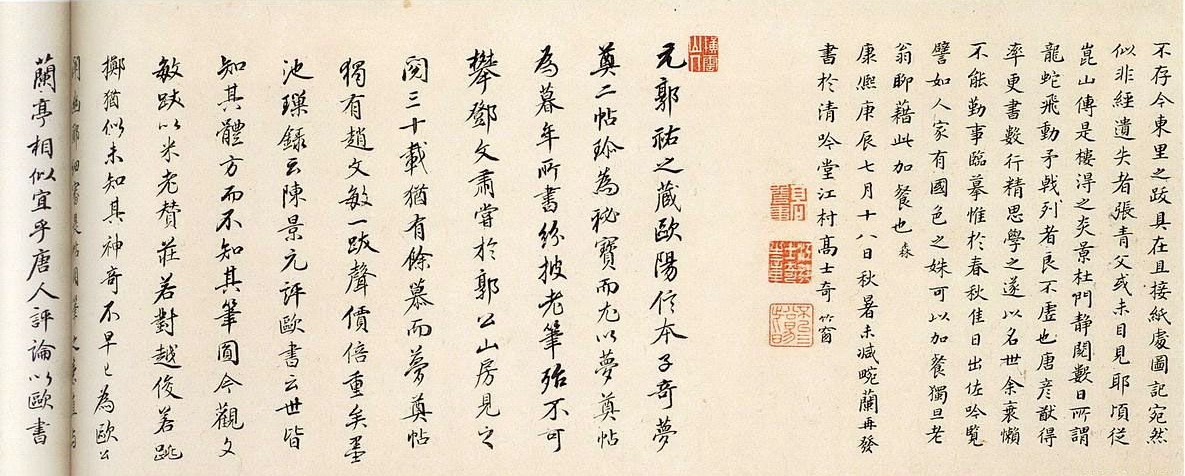 不存今東里之跋具在且接紙處圖記宛然
似非經遺失者張青父或未目見耶頃從
崑山傳是樓得之炎景杜門靜閱數日所謂
龍蛇飛動矛戟列者良不虛也唐彥猷得
率更書數行精思學之遂以名世余衰懶
不能勤事臨摹惟於春秋佳日出佐吟覽
譬如人家有國色之姝可以加餐獨旦老
翁聊藉此加餐也
康熙庚辰七月十八日秋暑未減畹蘭再發
書於清吟堂江村高士奇 竹窗
橫雲山人
元郭祐之藏歐陽信本子奇夢
奠二帖珍為秘寶而尤以夢奠帖
為暮年所書紛披老筆殆不可
攀鄧文肅嘗於郭公山房見之
閱三十載猶有餘慕而夢奠帖
獨有趙文敏一跋聲價倍重矣墨
池璅錄云陳景元評歐書云世皆
知其體方而不知其筆圓今觀文
敏跋以米老贊莊若對越俊若跳
擲猶似未知其神奇不早為歐公
蘭亭相似宜乎唐人評論以歐書